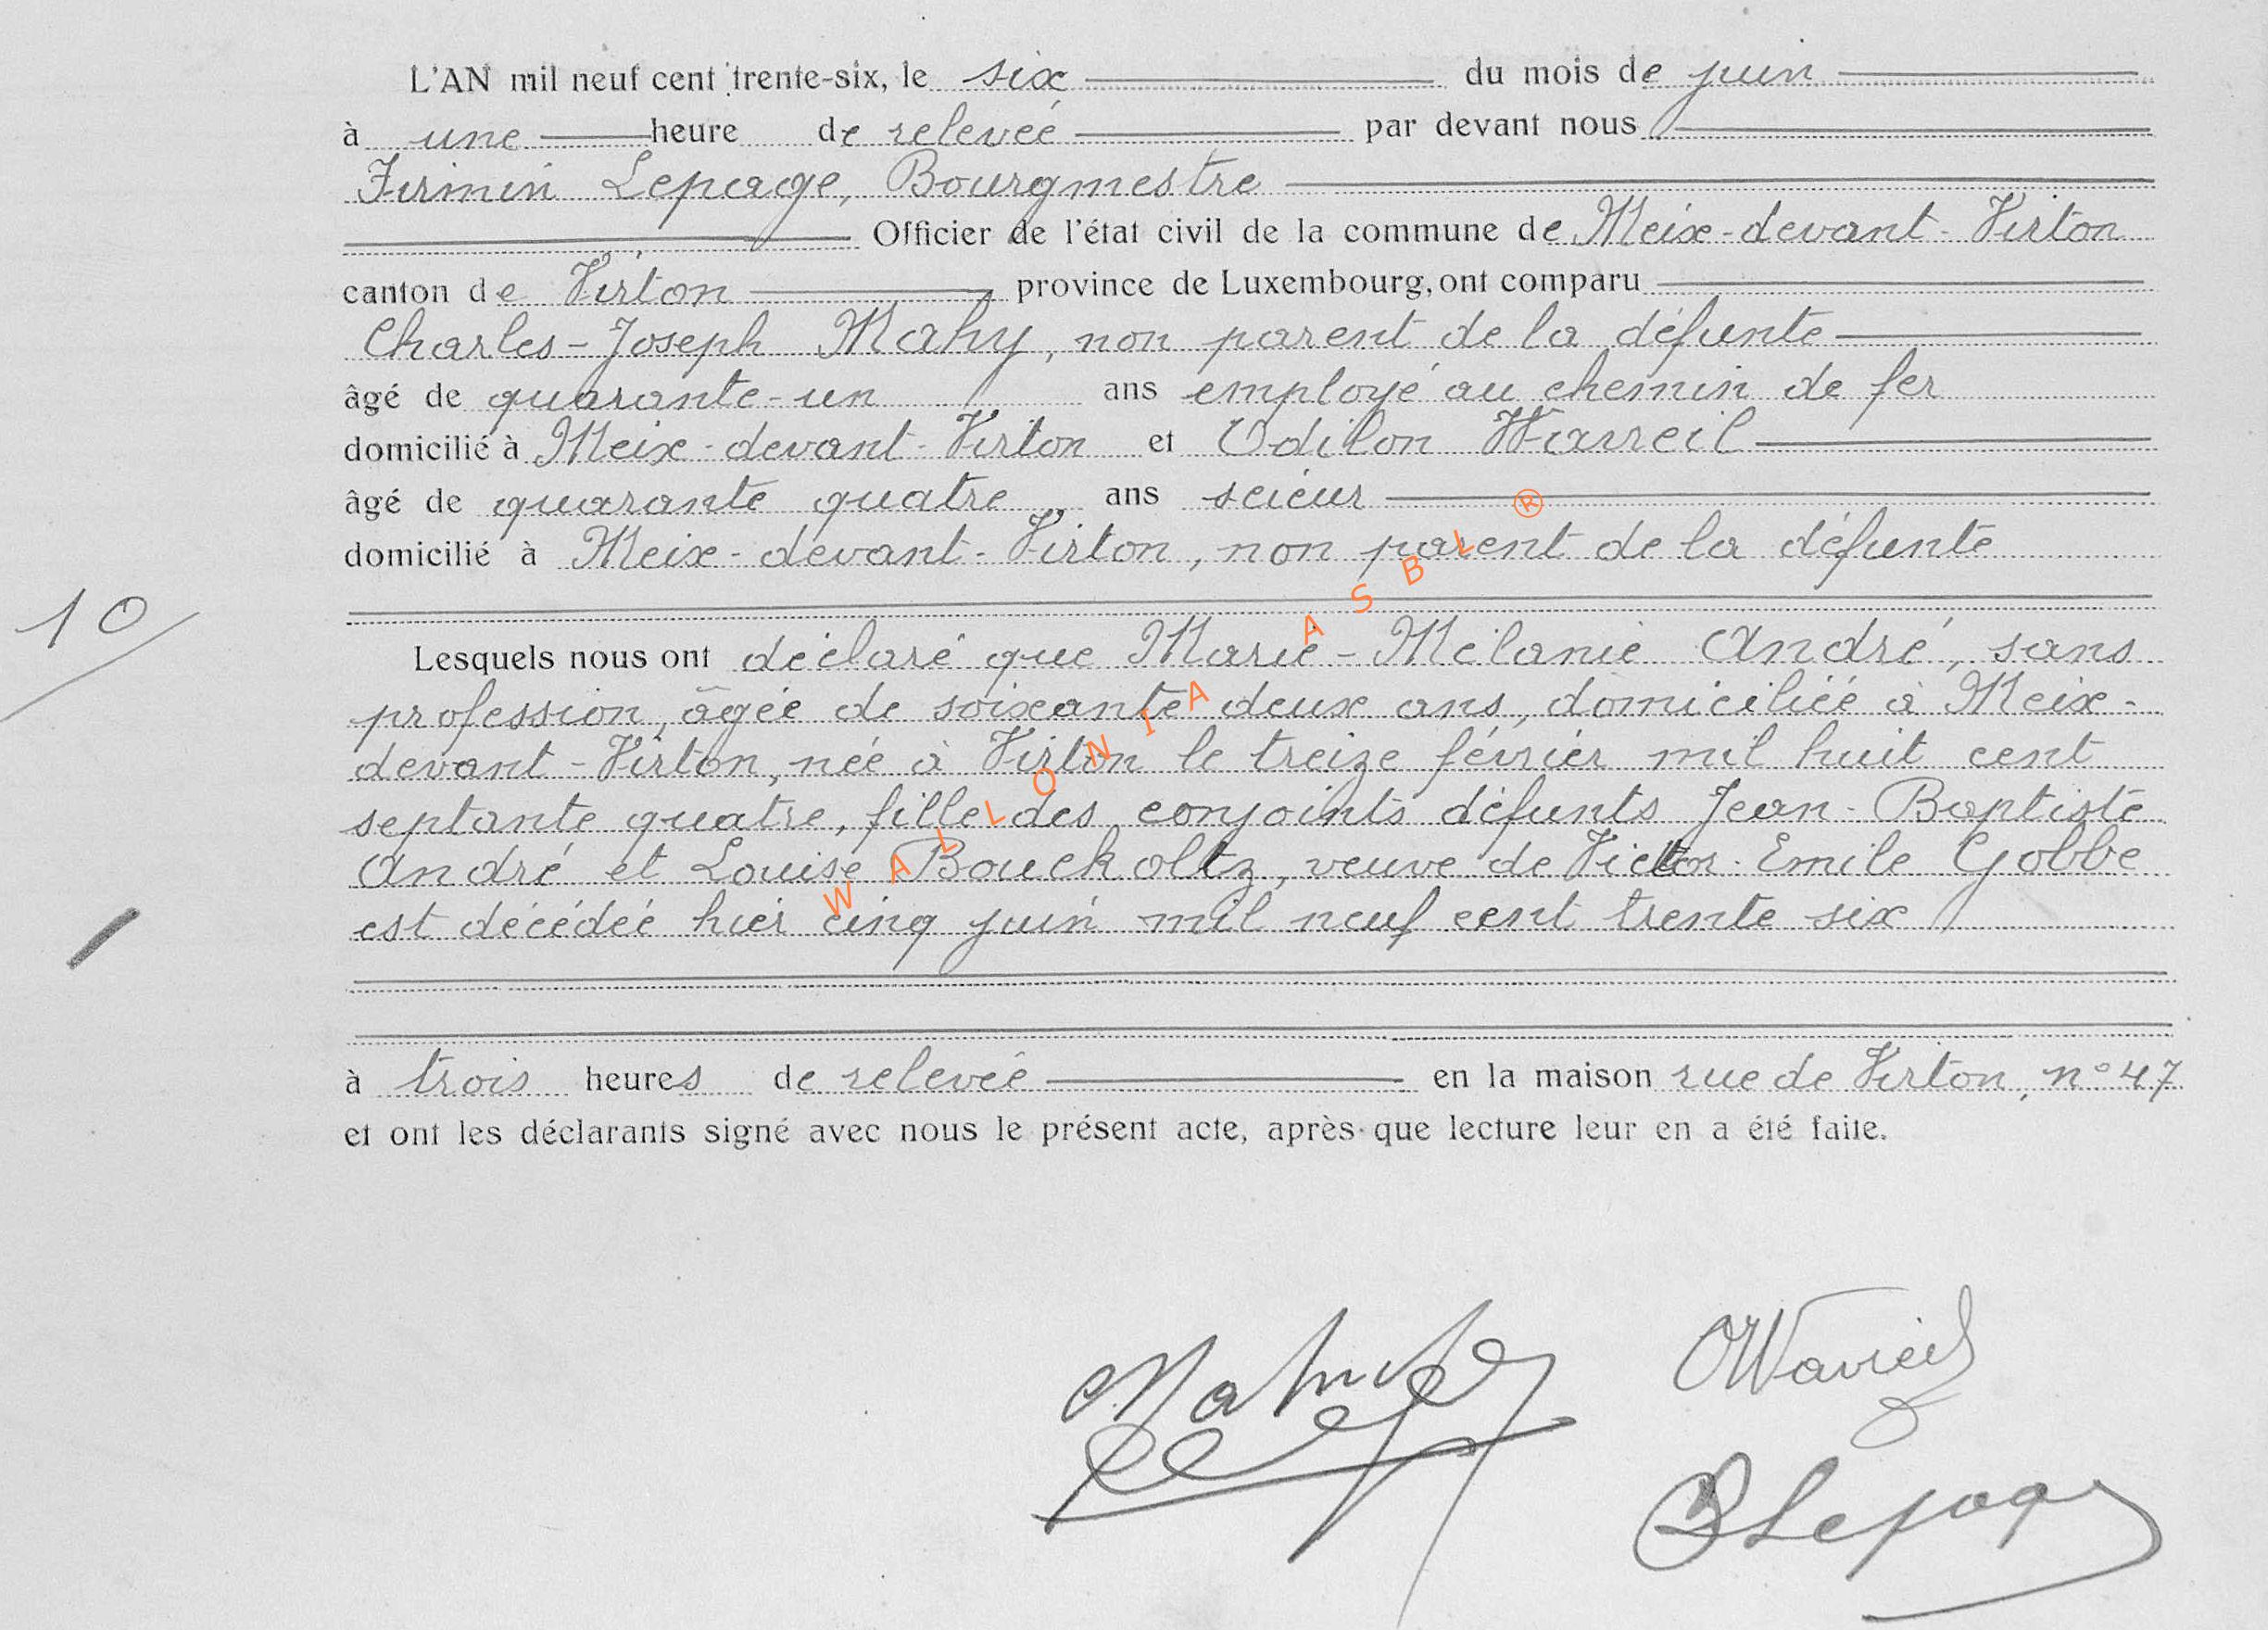 L'AN mil neuf cent trente-six, le six du mois de juin
à une heure de relevée par devant nous
Firmin Lepage, Bourgmestre
Officier de l'état civil de la commune de Meix-devant-Virton
canton de Virton province de Luxembourg, ont comparu
Charles-Joseph Mahy, non parent de la défunte
âgé de quarante-un ans employé au chemin de fer
domicilié à Meix-devant-Virton et Odilon Wavreil
âgé de quarante quatre ans scieur
domicilié à Meix-devant-Virton, non parent de la défunte
10
Lesquels nous ont déclaré que Marie-Mélanie André, sans
profession, âgée de soixante deux ans, domiciliée à Meix-
devant-Virton, née à Virton le treize février mil huit cent
septante quatre, fille des conjoints défunts Jean-Baptiste
André et Louise Bouckoltz, veuve de Victor-Emile Gobbe
est décédée hier cinq juin mil neuf cent trente six
à trois heures de relevée en la maison rue de Virton, n° 47
et ont les déclarants signé avec nous le présent acte, après que lecture leur en a été faite.
WALLONIA ASBL ®
OWavreil
Lepage